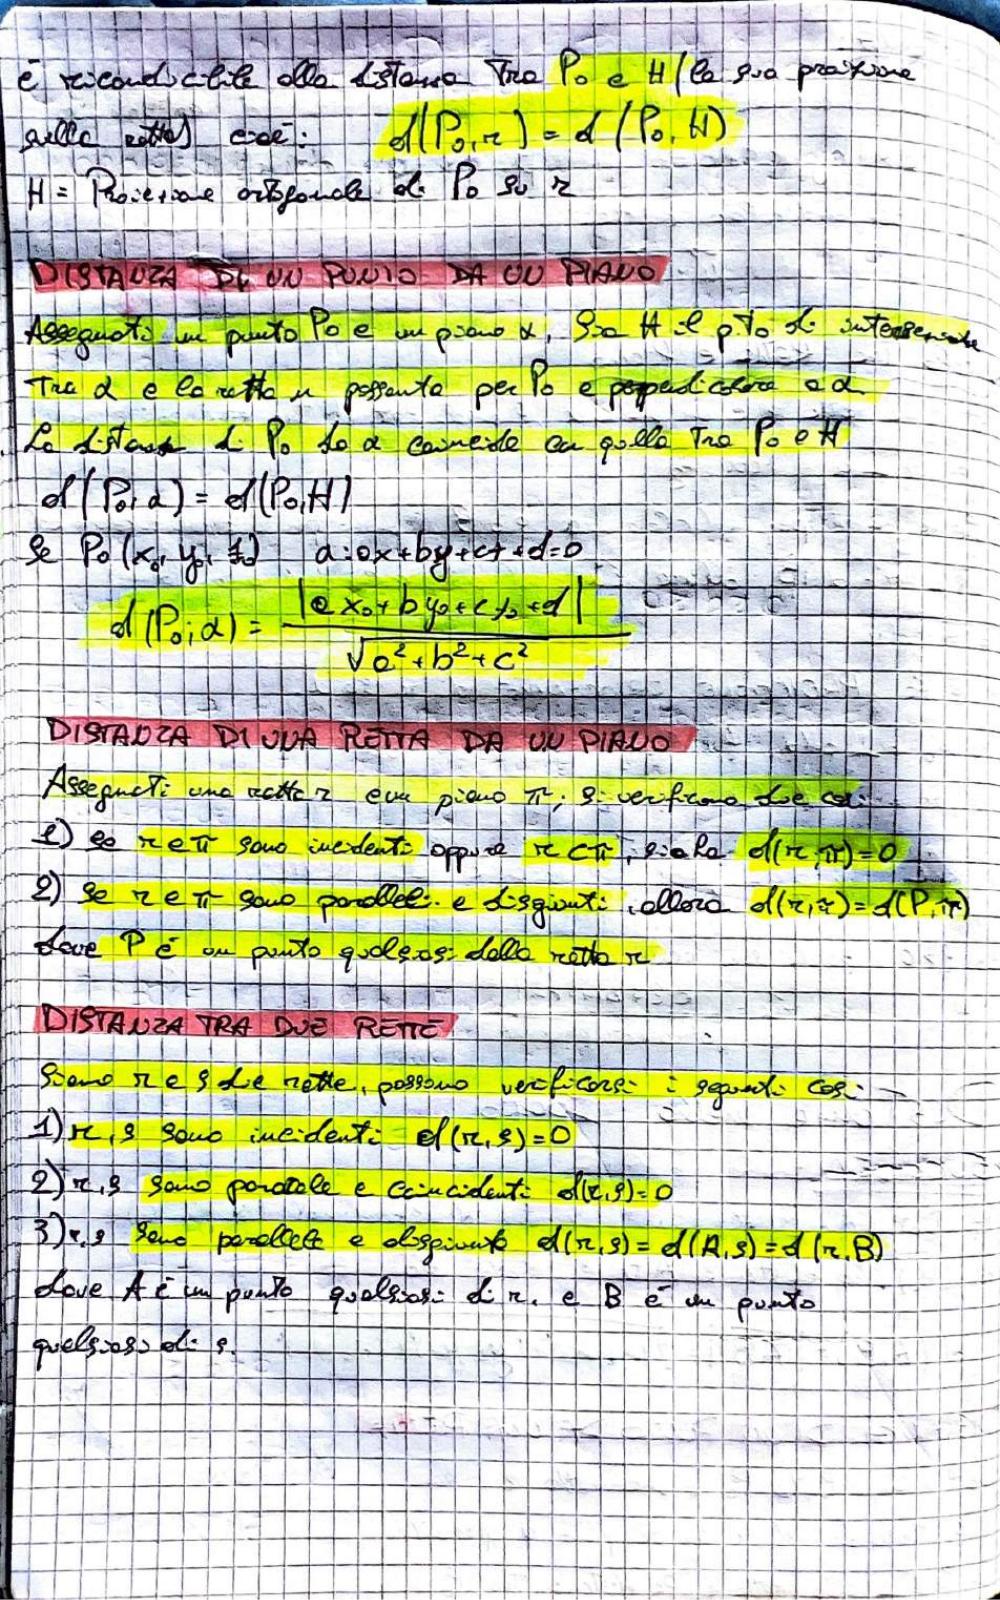 è riconducibile alla distanza Tra P₀ e H (la sua proiezione
sulla retta) cioè: d(P₀,r) = d(P₀,H)
H = Proiezione ortogonale di P₀ su r
DISTANZA DI UN PUNTO DA UN PIANO
Assegnati un punto P₀ e un piano α, Sia H il p.to di intersezione
Tra α e la retta n passante per P₀ e perpendicolare a α
La distanza di P₀ da α coincide con quella Tra P₀ e H
d(P₀,α) = d(P₀,H)
Se P₀(x₀, y₀, z₀) α:ax+by+cz+d=0
d(P₀;α) = |ax₀+by₀+cz₀+d| / √a²+b²+c²
DISTANZA DI UNA RETTA DA UN PIANO
Assegnati una retta r e un piano π, si verificano due casi:
1) se r e π sono incidenti oppure r⊂π, si ha d(r,π)=0
2) se r e π sono paralleli e disgiunti, allora d(r,π)=d(P,π)
dove P è un punto qualsiasi della retta r
DISTANZA TRA DUE RETTE
Siano r e s due rette, possono verificarsi i seguenti casi:
1) r,s sono incidenti d(r,s)=0
2) r,s sono parallele e coincidenti d(r,s)=0
3) r,s sono parallele e disgiunte d(r,s)=d(A,s)=d(r,B)
dove A è un punto qualsiasi di r, e B è un punto
qualsiasi di s.